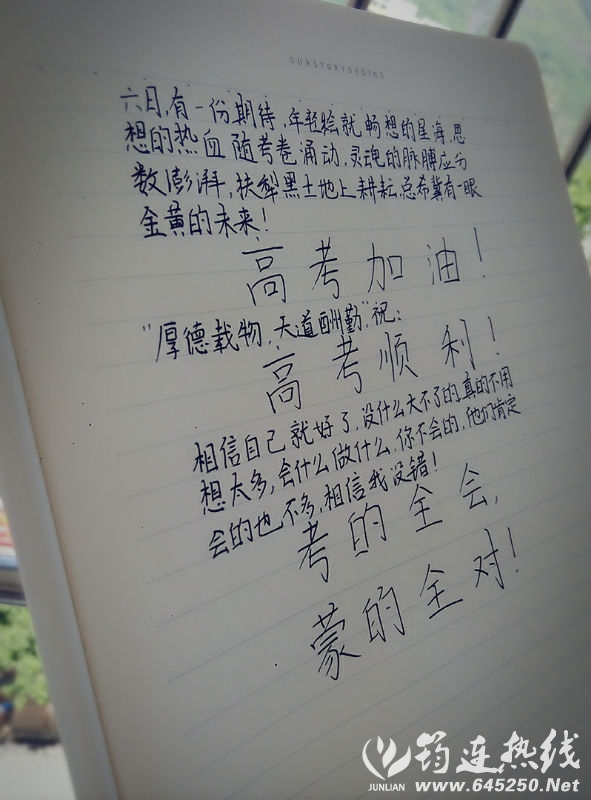 OURSTORYBEGINS
六日,有一份期待,年轻绘就畅想的星海,思
想的热血随考卷涌动,灵魂的脉膊应分
数澎湃,扶犁黑土地上耕耘,总希冀有一眼
金黄的未来!
高考加油!
“厚德载物,天道酬勤”,祝:
高考顺利!
相信自己就好了,没什么大不了的,真的不用
想太多,会什么做什么,你不会的,他们肯定
会的也不多,相信我没错!
考的全会,
蒙的全对!
筠连热线
JUNLIAN www.645250.Net